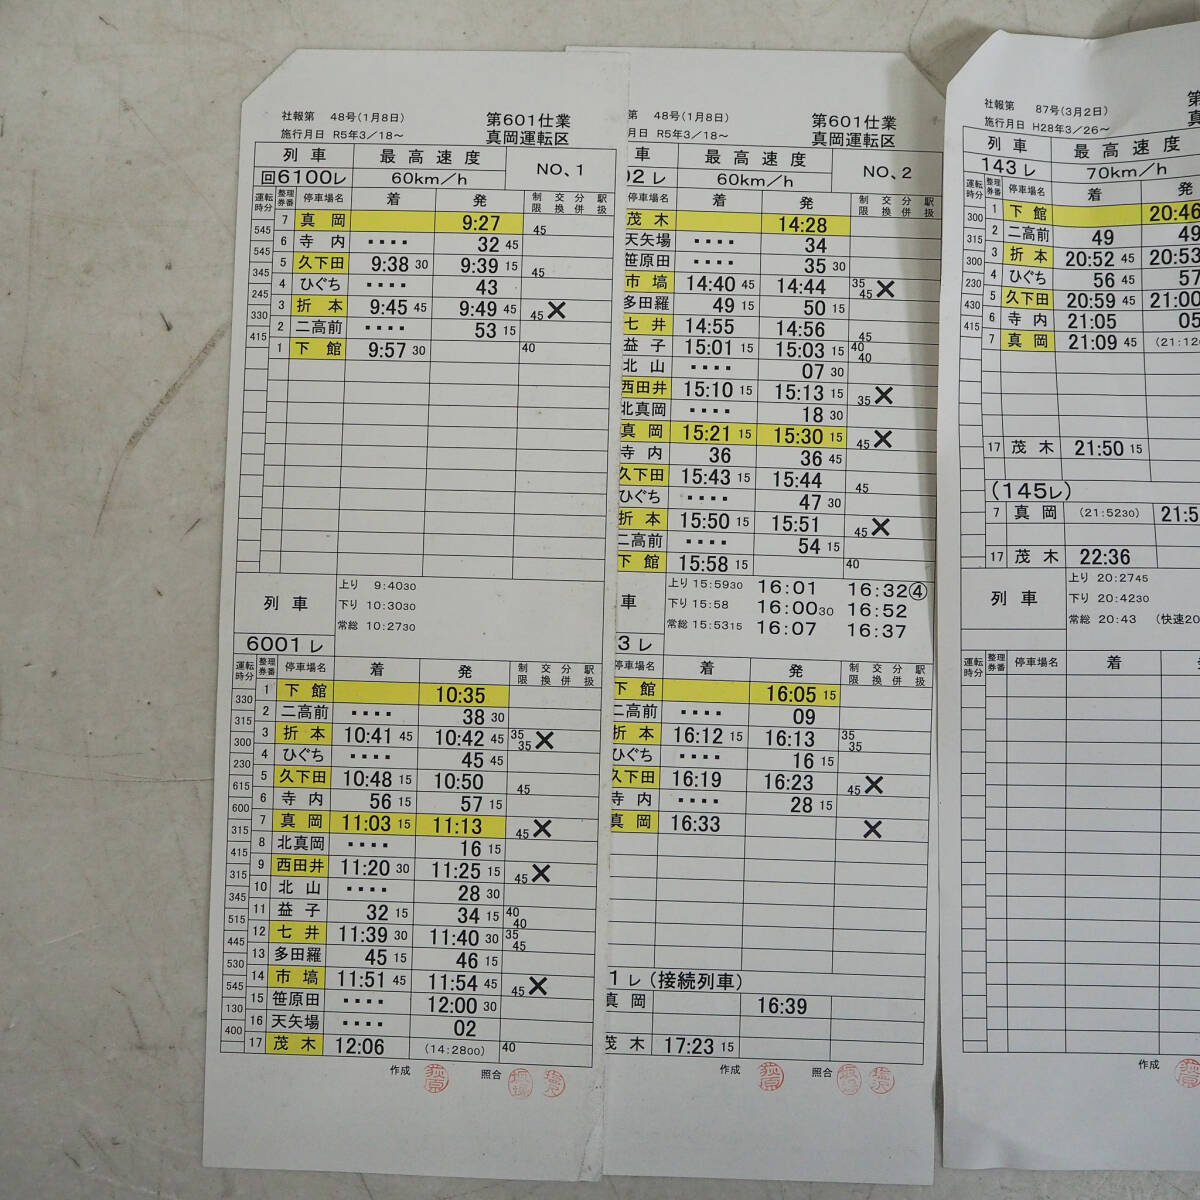 社報第 48号(1月8日)
施行月日 R5年3/18~
第601仕業
真岡運転区
列車 最高速度 NO、1
回6100レ 60km/h
運転時分 整理券番 停車場名 着 発 制限 交換 分併 駅扱
7 真岡 9:27 45
545
6 寺内 ···· 32 45
545
5 久下田 9:38 30 9:39 15 45
345
4 ひぐち ···· 43
245
3 折本 9:45 45 9:49 45 45 ×
330
2 二高前 ···· 53 15
415
1 下館 9:57 30 40
列車
上り 9:4030
下り 10:3030
常総 10:2730
6001レ
運転時分 整理券番 停車場名 着 発 制限 交換 分併 駅扱
1 下館 10:35
330
2 二高前 ···· 38 30
315
3 折本 10:41 45 10:42 45 35 35 ×
300
4 ひぐち ···· 45 45
230
5 久下田 10:48 15 10:50 45
615
6 寺内 56 15 57 15
600
7 真岡 11:03 15 11:13 45 ×
315
8 北真岡 ···· 16 15
415
9 西田井 11:20 30 11:25 15 45 ×
315
10 北山 ···· 28 30
345
11 益子 32 15 34 15 40 40
515
12 七井 11:39 30 11:40 30 35 45
445
13 多田羅 45 15 46 15
530
14 市塙 11:51 45 11:54 45 45 ×
545
15 笹原田 ···· 12:00 30
130
16 天矢場 ···· 02
400
17 茂木 12:06 (14:2800) 40
作成 照合
第 48号(1月8日)
月日 R5年3/18~
第601仕業
真岡運転区
車 最高速度 NO、2
02レ 60km/h
停車場名 着 発 制限 交換 分併 駅扱
茂木 14:28
天矢場 ···· 34
笹原田 ···· 35 30
市塙 14:40 45 14:44 35 45 ×
多田羅 49 15 50 15
七井 14:55 14:56 45
益子 15:01 15 15:03 15 40 40
北山 ···· 07 30
西田井 15:10 15 15:13 15 35 ×
北真岡 ···· 18 30
真岡 15:21 15 15:30 15 45 ×
寺内 36 36 45
久下田 15:43 15 15:44 45
ひぐち ···· 47 30
折本 15:50 15 15:51 45 ×
二高前 ···· 54 15
下館 15:58 15 40
車
上り 15:5930 16:01 16:32④
下り 15:58 16:0030 16:52
常総 15:5315 16:07 16:37
3レ
停車場名 着 発 制限 交換 分併 駅扱
下館 16:05 15
二高前 ···· 09
折本 16:12 15 16:13 35 35
ひぐち ···· 16 15
久下田 16:19 16:23 45 ×
寺内 ···· 28 15
真岡 16:33 ×
1レ(接続列車)
真岡 16:39
茂木 17:23 15
作成 照合
社報第 87号(3月2日)
施行月日 H28年3/26~
第
列車 最高速度
143レ 70km/h
運転時分 整理券番 停車場名 着 発
1 下館 20:46
300
2 二高前 49 49
315
3 折本 20:52 45 20:53
300
4 ひぐち 56 45 57
230
5 久下田 20:59 45 21:00
430
6 寺内 21:05 05
415
7 真岡 21:09 45 (21:120
17 茂木 21:50 15
(145レ)
7 真岡 (21:5230) 21:5
17 茂木 22:36
列車
上り 20:2745
下り 20:4230
常総 20:43 (快速20
運転時分 整理券番 停車場名 着
作成